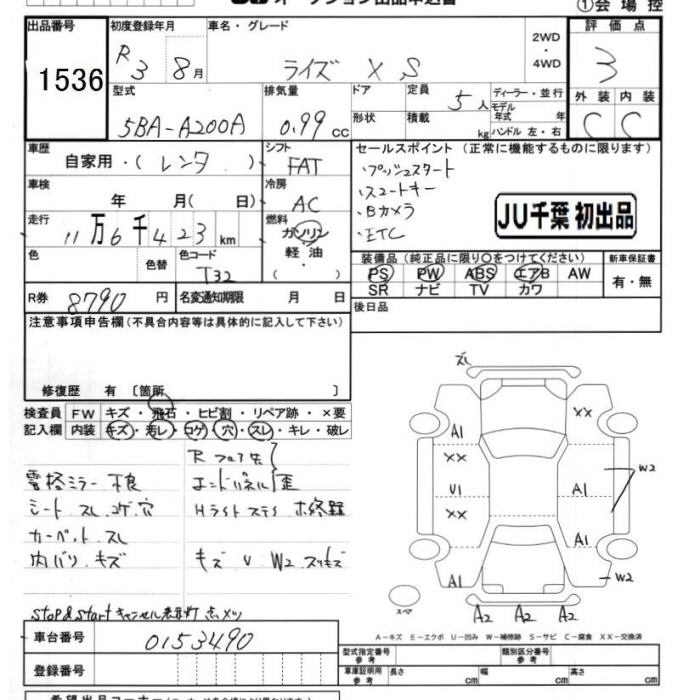 オークション出品申込書
①会場控
出品番号 1536
初度登録年月 R3 8月
車名・グレード ライズ X S
2WD・4WD
評価点 3
型式 5BA-A200A
排気量 0.99 cc
ドア 形状
定員 5人 積載 kg
ディーラー・並行
モデル年式 年
ハンドル 左・右
外装 C 内装 C
車歴 自家用・(レンタ )
シフト FAT
セールスポイント (正常に機能するものに限ります)
・プッシュスタート
・スマートキー
・Bカメラ
・ETC
JU千葉 初出品
車検 年 月( 日)
冷房 AC
走行 11万6千423km
燃料 ガソリン・軽油・( )
色 色替 色コード T32
装備品 (純正品に限り〇をつけてください)
PS PW ABS エアB AW
SR ナビ TV カワ
新車保証書 有・無
R券 8790円
名変通知期限 月 日
後日品
注意事項申告欄 (不具合内容等は具体的に記入して下さい)
修復歴 有 〔箇所 〕
検査員記入欄
FW キズ・飛石・ヒビ割・リペア跡・×要
内装 キズ・汚レ・コゲ・穴・スレ・キレ・破レ
Rフロア先
エンドパネル 歪
ミラー 不良
シート スレ コゲ 穴
Hライト ステー
カーペット スレ
内バリ キズ
キズ U W2 スリキズ
stop & start キャンセル表示灯 点メツ
スレ
XX
A1
XX
W2
U1
A1
XX
A1
A1
W2
スペア
A2 A2 A2
A-キズ E-エクボ U-凹み W-補修跡 S-サビ C-腐食 XX-交換済
車台番号 0153490
型式指定番号 参考
類別区分番号 参考
車庫証明用 参考 長さ cm 幅 cm 高さ cm
登録番号
希望出品コーナー